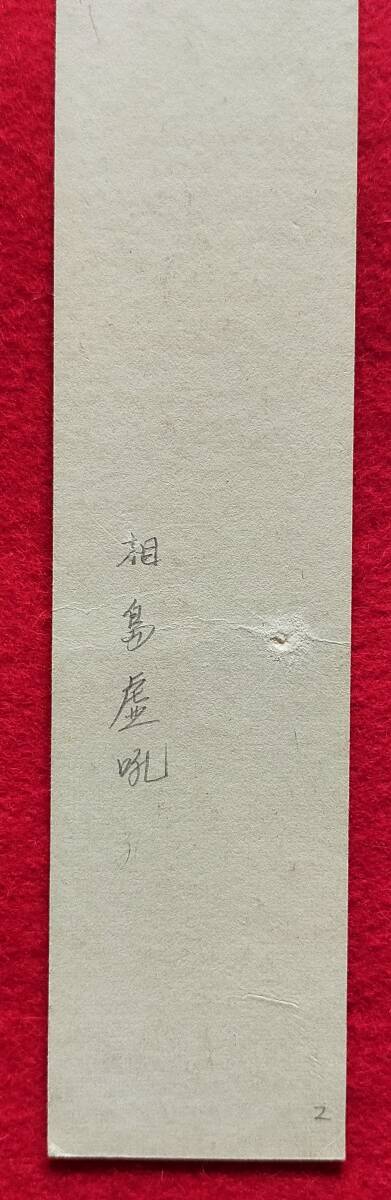 相島虚吼
2